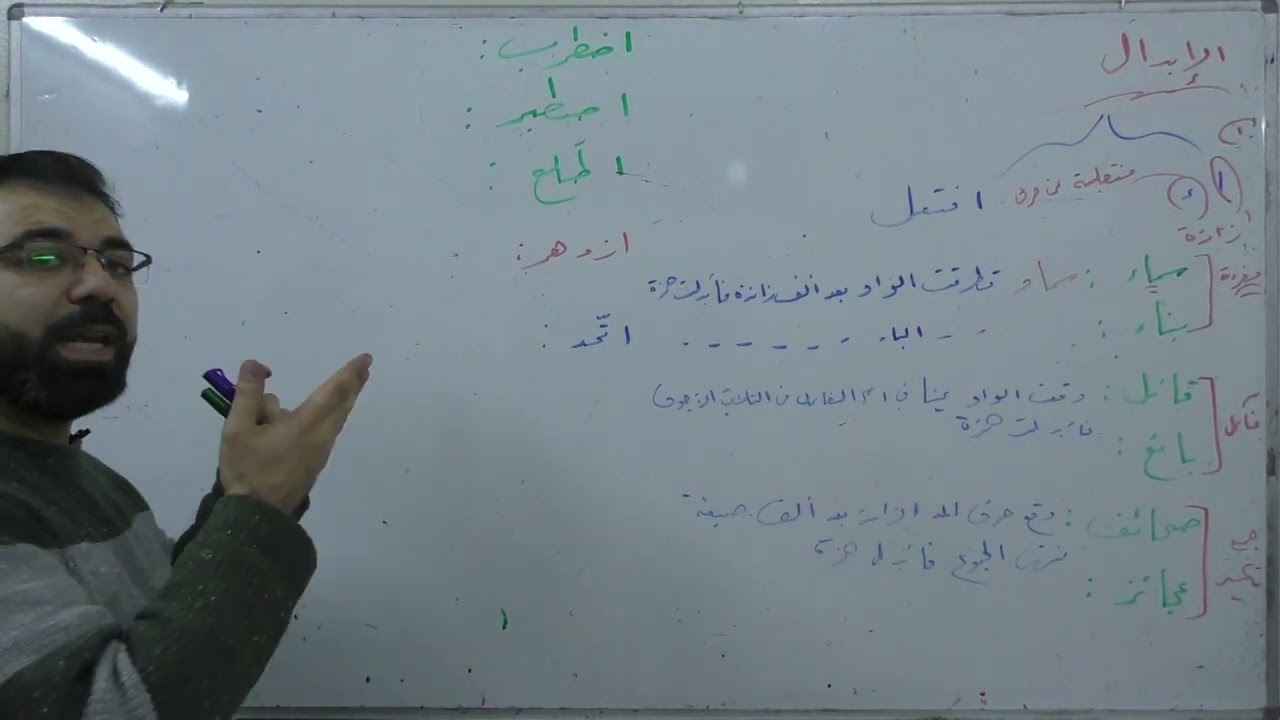 الإبدال
ا ء منقلبة عن حرف افتعل
زائدة
مفردة
سماء : سماو تطرفت الواو بعد ألف زائدة فأبدلت همزة
بناء : - - الياء - - - - - -
قائل : وقعت الواو عينا في اسم الفاعل من الثلاثي الأجوف
فأبدلت همزة
فاعل
بائع :
صحائف : وقع حرف المد الزائد بعد ألف صيغة
منتهى الجموع فأبدل همزة
جمع تكسير
عجائز :
اضطرب :
اصطبر :
اطّلع :
ازدهر :
اتّحد :